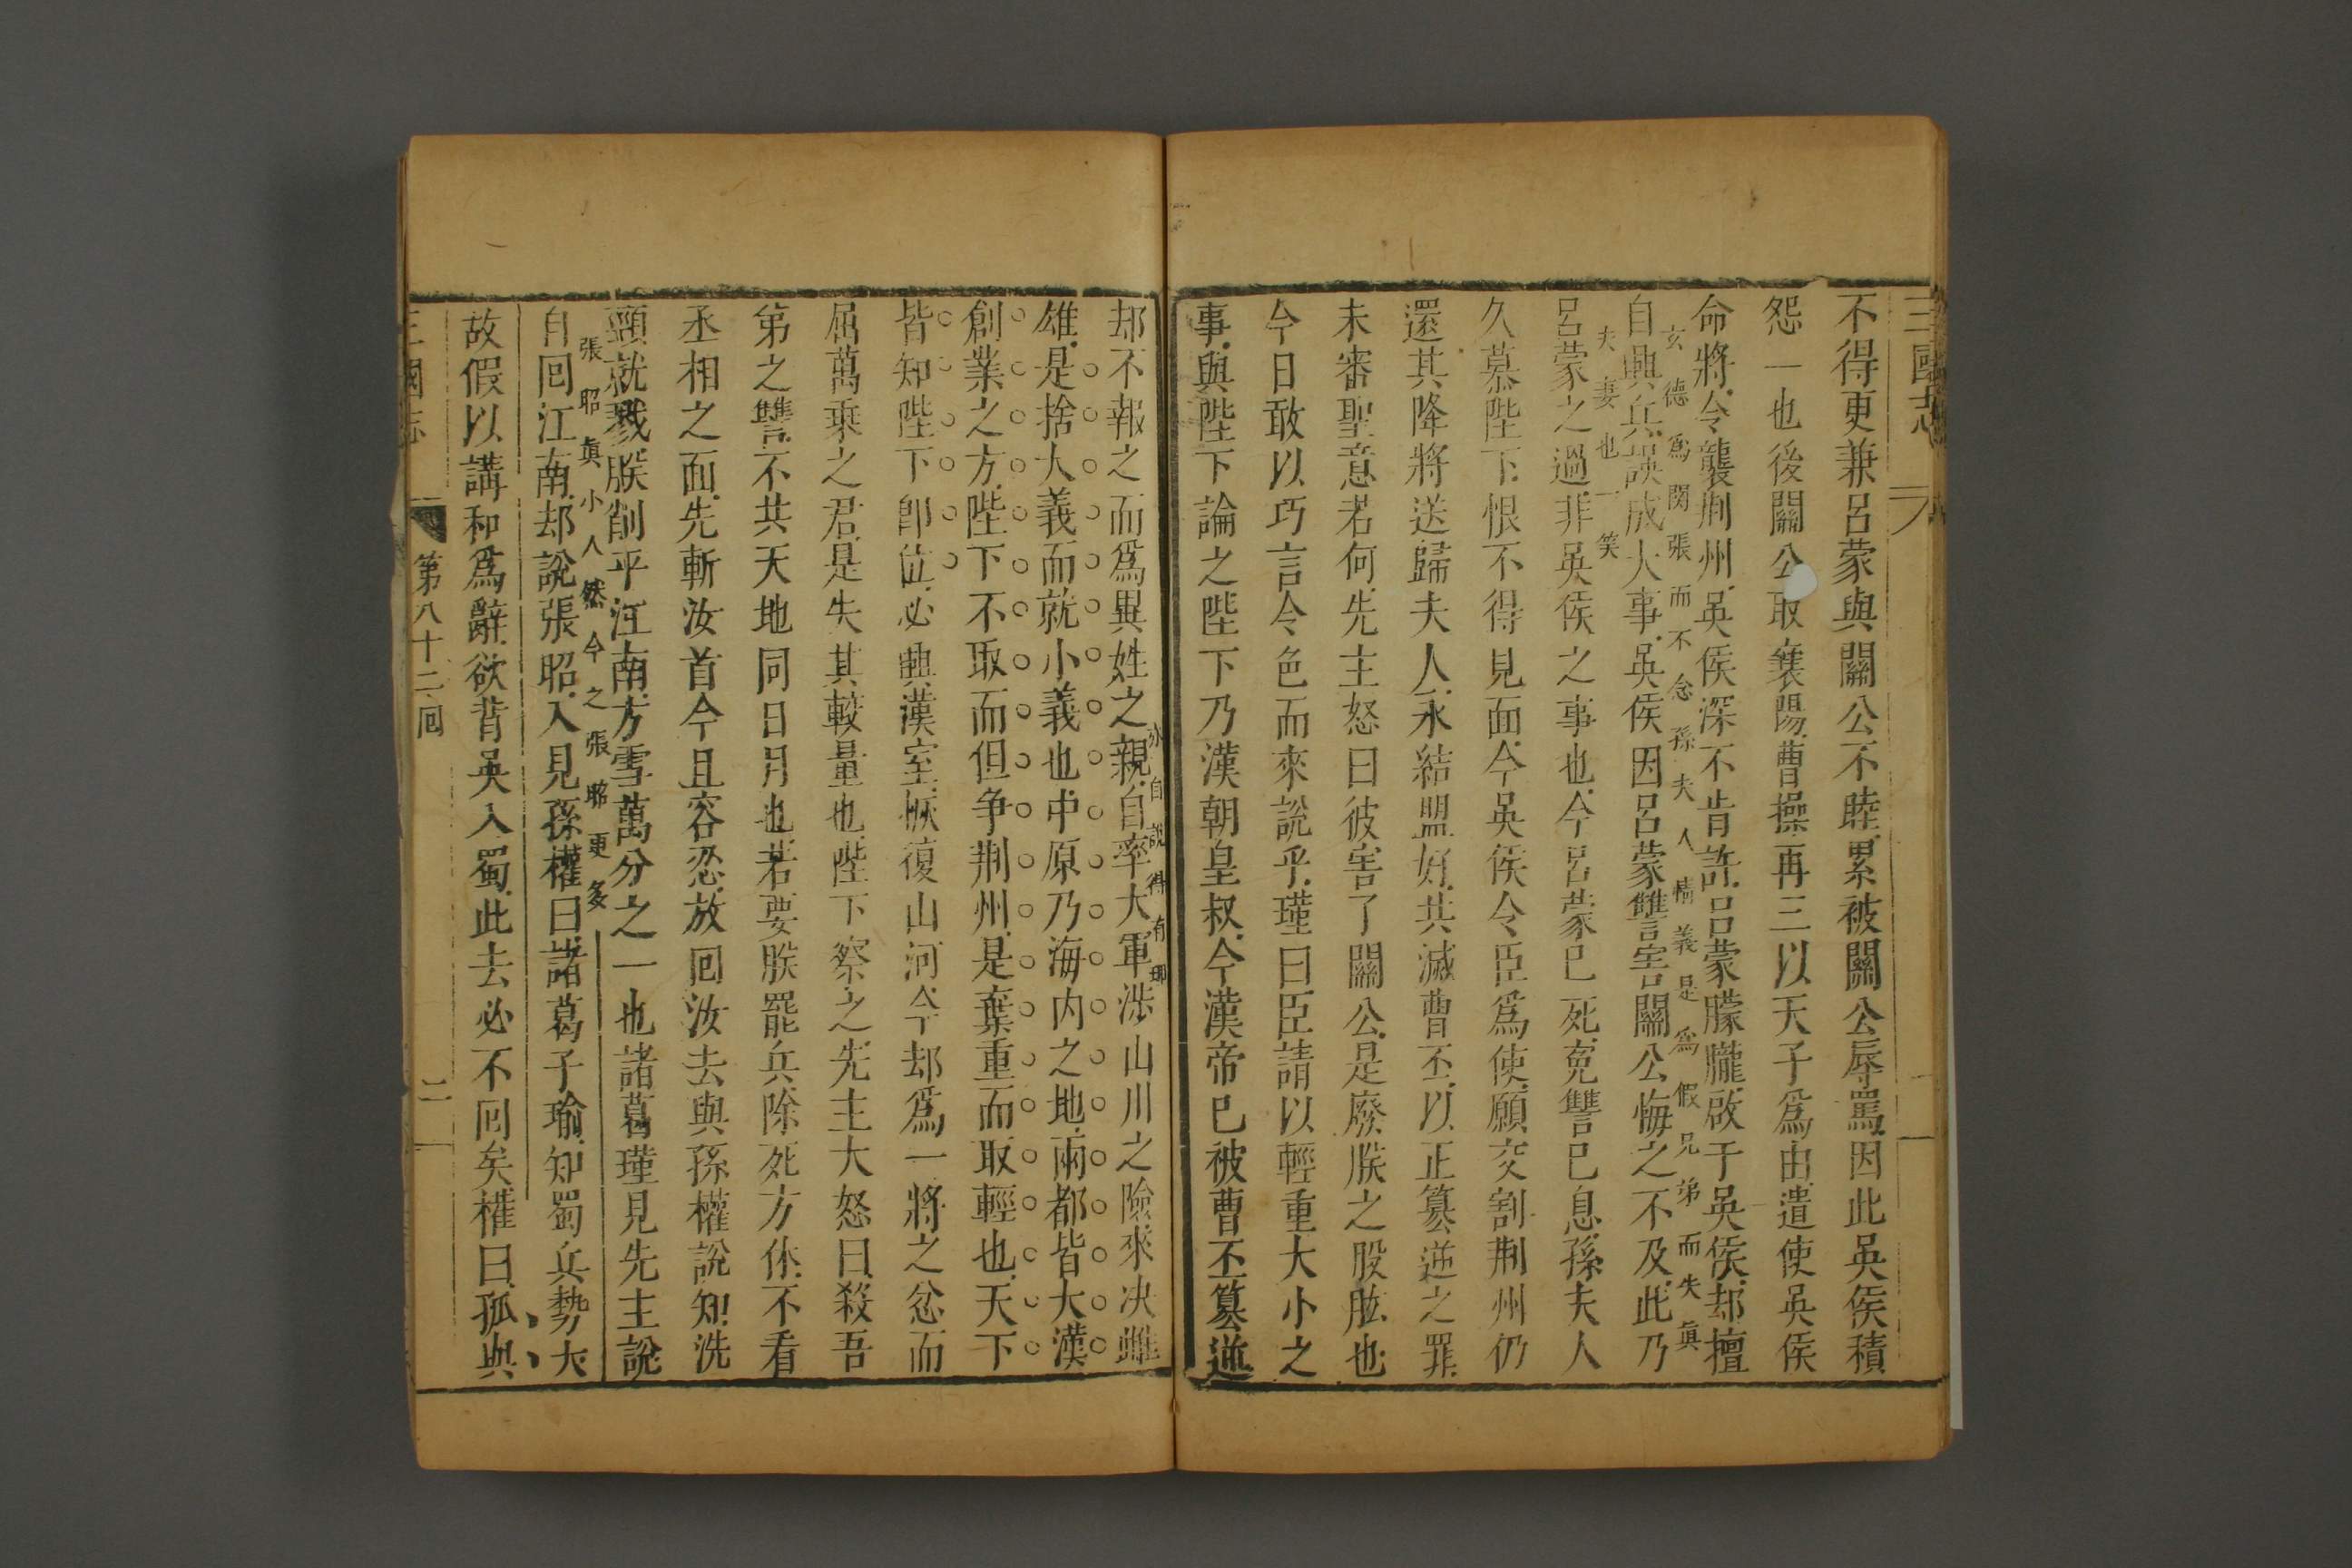 三國志
不得更兼呂蒙與關公不睦累被關公辱罵因此吳侯積
怨一也後關公取襄陽曹操再三以天子為由遣使吳侯
命將令襲荆州吳侯深不肯許呂蒙朦朧啟于吳侯却擅
玄德為関張而不念孫夫人情義是為假兄弟而失真
自興兵誤成大事吳侯因呂蒙讐害關公悔之不及此乃
夫妻也一笑
呂蒙之過非吳侯之事也今呂蒙已死寃讐已息孫夫人
久慕陛下恨不得見面今吳侯令臣為使願交割荆州仍
還其降將送歸夫人永結盟好共滅曹丕以正篡逆之罪
未審聖意若何先主怒曰彼害了關公是廢朕之股肱也
今日敢以巧言令色而來說乎瑾曰臣請以輕重大小之
事與陛下論之陛下乃漢朝皇叔今漢帝已被曹丕篡逆
亦自說得有理
却不報之而為異姓之親自率大軍涉山川之險來决雌
雄是捨大義而就小義也中原乃海内之地兩都皆大漢
創業之方陛下不取而但争荆州是棄重而取輕也天下
皆知陛下卽位必興漢室恢復山河今却為一將之忿而
屈萬乗之君是失其較量也陛下察之先主大怒曰殺吾
第之讐不共天地同日月也若要朕罷兵除死方休不看
丞相之面先斬汝首今且容忍放回汝去與孫權說知洗
頸就戮朕削平江南方雪萬分之一也諸葛瑾見先主說
張昭眞小人然今之張昭更多
自回江南却說張昭入見孫權曰諸葛子瑜知蜀兵勢大
故假以講和為辭欲背吳入蜀此去必不回矣權曰孤與
三國志 第八十二回 二